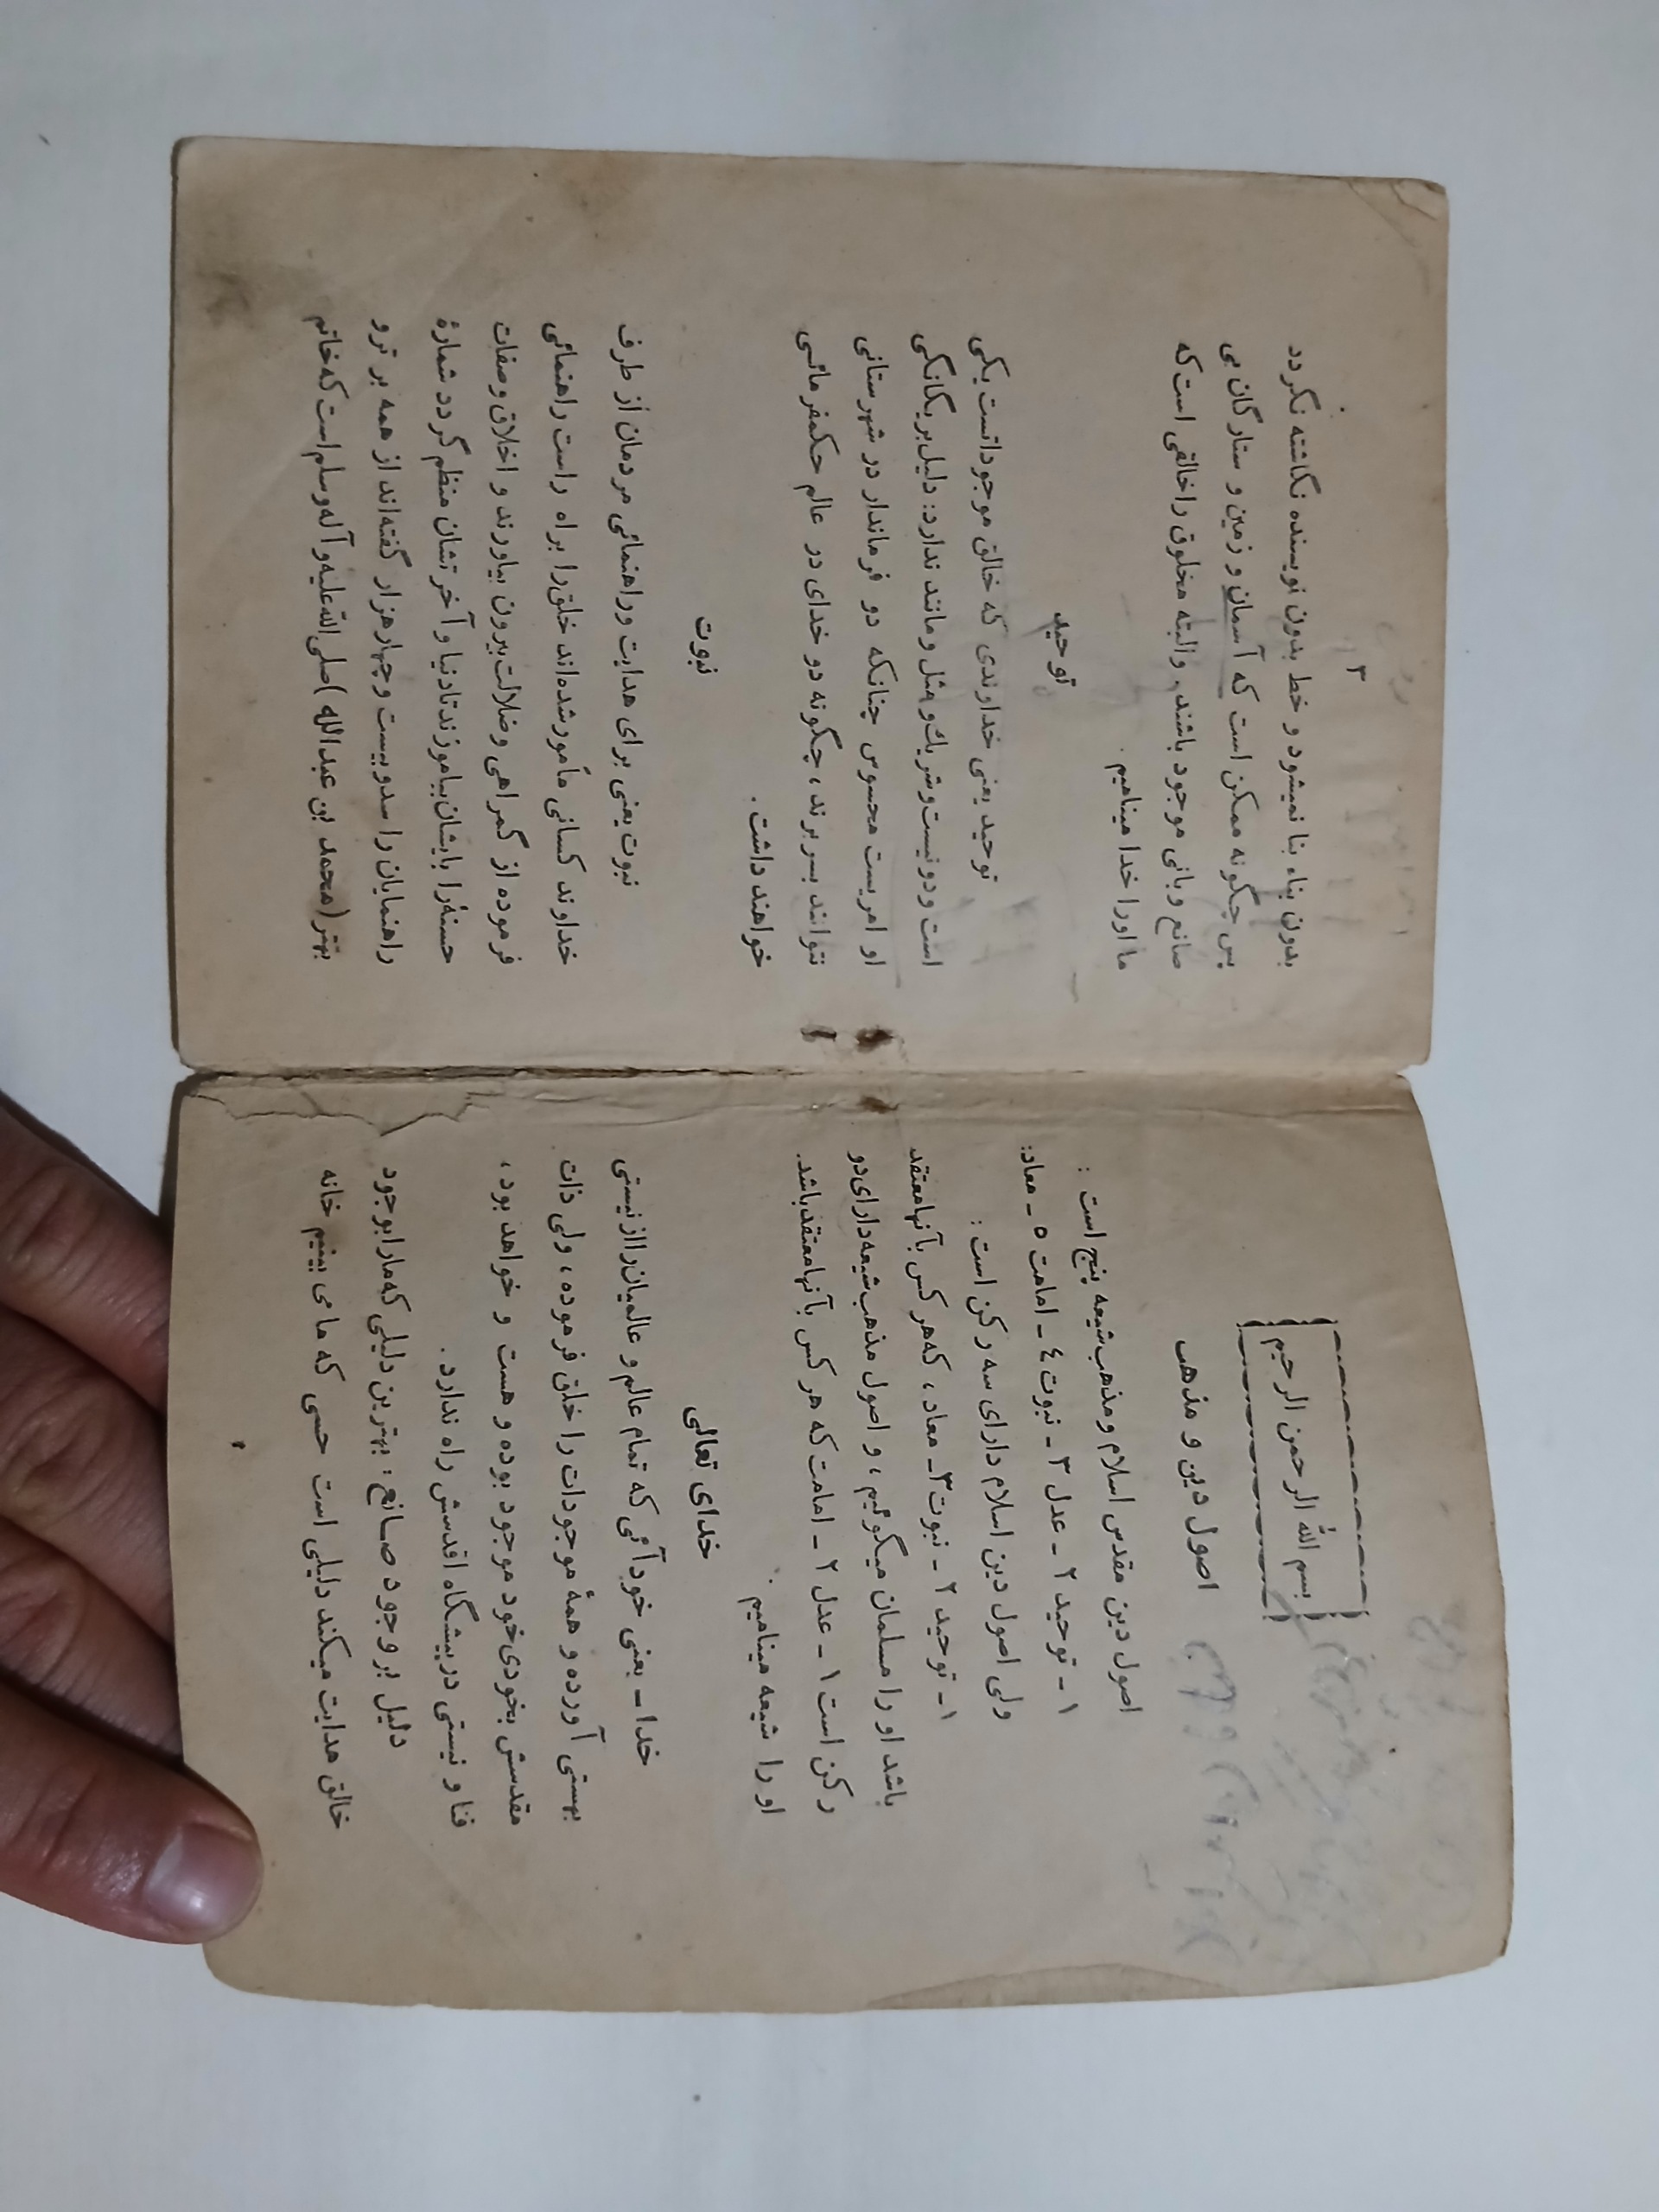 بسم الله الرحمن الرحیم
اصول دین و مذهب
اصول دین مقدس اسلام و مذهب شیعه پنج است :
۱ - توحید ۲ - عدل ۳ - نبوت ٤ - امامت ٥ - معاد:
ولی اصول دین اسلام دارای سه رکن است :
۱ - توحید ۲ - نبوت ۳ - معاد ، که هر کس بآنها معتقد
باشد او را مسلمان میگوئیم ، و اصول مذهب شیعه دارای دو
رکن است ۱ - عدل ۲ - امامت که هر کس بآنها معتقد باشد.
او را شیعه مینامیم .
خدای تعالی
خدا - یعنی خودآئی که تمام عالم و عالمیان را از نیستی
بهستی آورده و همهٔ موجودات را خلق فرموده ، ولی ذات
مقدسش بخودی خود موجود بوده و هست و خواهد بود ،
فنا و نیستی در پیشگاه اقدسش راه ندارد .
دلیل بر وجود صانع : بهترین دلیلی که ما را بوجود
خالق هدایت میکند دلیلی است حسی که ما می بینیم خانه
۳
بدون بناء بنا نمیشود و خط بدون نویسنده نگاشته نگردد
پس چگونه ممکن است که آسمان و زمین و ستارگان بی
صانع و بانی موجود باشند و البته مخلوق را خالقی است که
ما او را خدا مینامیم .
توحید
توحید یعنی خداوندی که خالق موجودانست یکی
است و دو نیست و شریك و مثل و مانند ندارد: دلیل بر یگانگی
او امریست محسوس چنانکه دو فرماندار در شهرستانی
نتوانند بسر برند ، چگونه دو خدای در عالم حکمفرمائی
خواهند داشت .
نبوت
نبوت یعنی برای هدایت و راهنمائی مردمان از طرف
خداوند کسانی مأمور شده‌اند خلق را براه راست راهنمائی
فرموده از گمراهی و ضلالت بیرون بیاورند و اخلاق و صفات
حسنه را بایشان بیاموزند تا دنیا و آخرتشان منظم گردد شمارهٔ
راهنمایان را صدو بیست و چهار هزار گفته‌اند از همه بر تر و
بهتر (محمد بن عبدالله) صلی الله علیه و آله و سلم است که خاتم